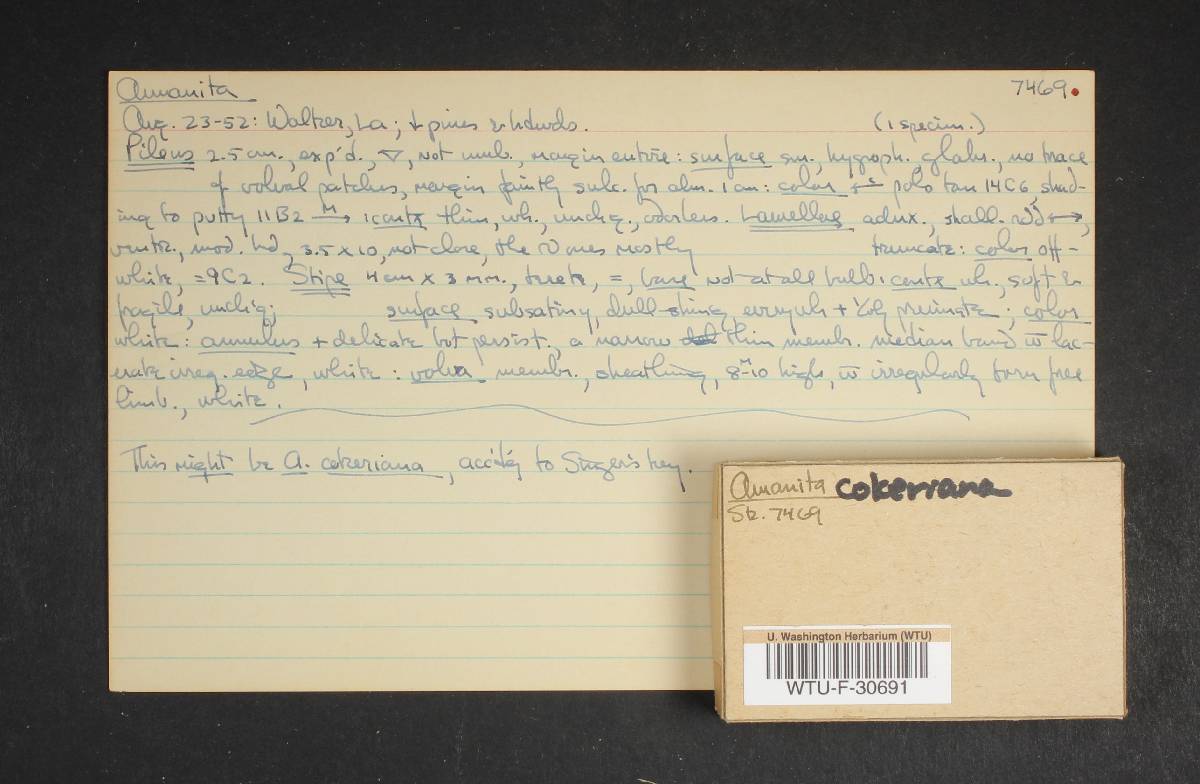 Amanita 7469.
Aug. 23-52: Waltzer, La; + pines & hdwds. (1 specim.)
Pileus 2.5 cm., exp'd., ▽, not umb., margin entire: surface sm., hygroph. glabr., no trace
of volval patches, margin faintly sulc. for abm. 1 cm: color polo tan 14C6, shad-
ing to putty 11B2 M→ : contx thin, wh., unchg., odorless. Lamellae adnx., shall.
ventr., mod. bd, 3.5 x 10, not close, the ones mostly truncate: color off-
white, = 9C2. Stipe 4 cm x 3 mm., terete, =, base not at all bulb: contx wh., soft &
fragile, unchg; surface subsatiny, dull shing, everywh + pruinate; color
white: annulus + delicate but persist., a narrow thin membr. median band w̄ lac-
erate irreg. edge, white: volva membr., sheathing, 8-10 M high, w̄ irregularly torn free
limb., white.
This might be A. cokeriana, acc'dg to Singer's key.
Amanita cokeriana
Stz. 7469
U. Washington Herbarium (WTU)
WTU-F-30691